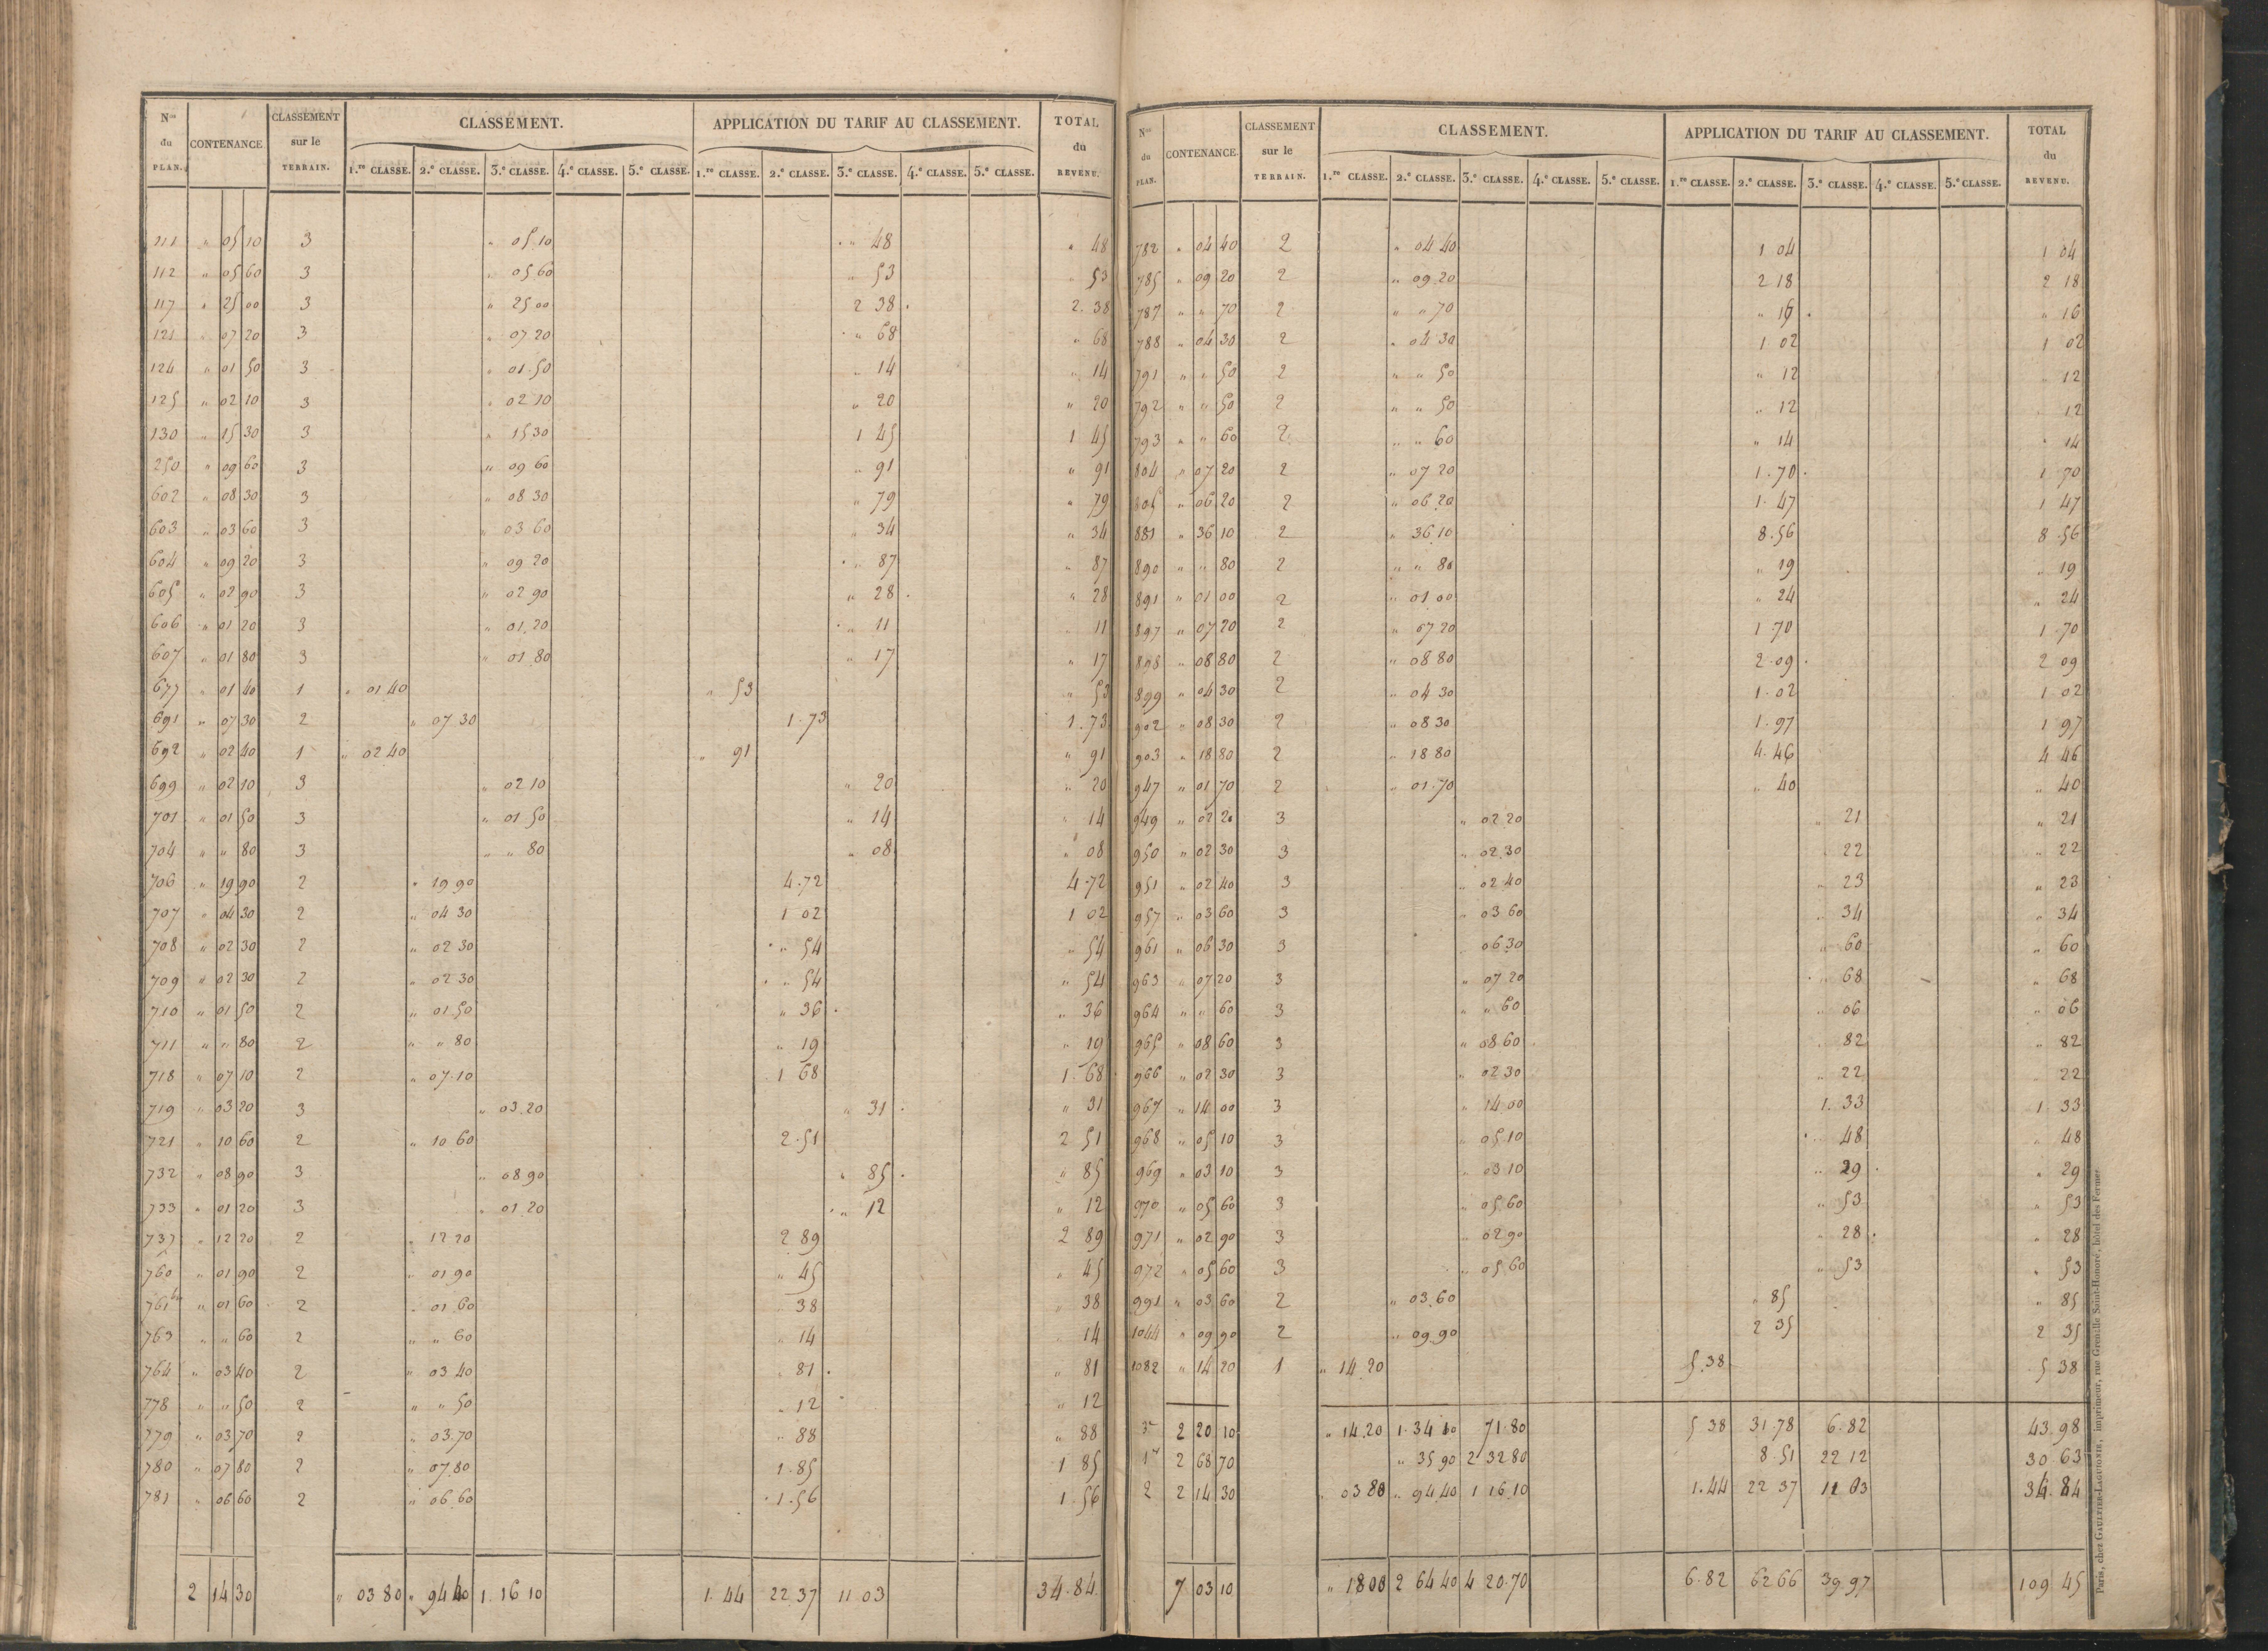 Nos du PLAN. CONTENANCE. CLASSEMENT sur le TERRAIN. CLASSEMENT. APPLICATION DU TARIF AU CLASSEMENT. TOTAL du REVENU.
1.re CLASSE. 2.e CLASSE. 3.e CLASSE. 4.e CLASSE. 5.e CLASSE. 1.re CLASSE. 2.e CLASSE. 3.e CLASSE. 4.e CLASSE. 5.e CLASSE.
111 " 05 10 3 " 05 10 " 48 " 48
112 " 05 60 3 " 05 60 " 53 " 53
117 " 25 00 3 " 25 00 2 38 2.38
121 " 07 20 3 " 07 20 " 68 " 68
124 " 01 50 3 " 01.50 " 14 " 14
125 " 02 10 3 " 02 10 " 20 " 20
130 " 15 30 3 " 15 30 1 45 1 45
250 " 09 60 3 " 09 60 " 91 " 91
602 " 08 30 3 " 08 30 " 79 " 79
603 " 03 60 3 " 03 60 " 34 " 34
604 " 09 20 3 " 09 20 " 87 " 87
605 " 02 90 3 " 02 90 " 28 " 28
606 " 01 20 3 " 01.20 " 11 " 11
607 " 01 80 3 " 01 80 " 17 " 17
677 " 01 40 1 " 01 40 " 53 " 53
691 " 07 30 2 " 07 30 1.73 1.73
692 " 02 40 1 " 02 40 " 91 " 91
699 " 02 10 3 " 02 10 " 20 " 20
701 " 01 50 3 " 01 50 " 14 " 14
704 " " 80 3 " " 80 " 08 " 08
706 " 19 90 2 " 19 90 4.72 4.72
707 " 04 30 2 " 04 30 1 02 1 02
708 " 02 30 2 " 02 30 " 54 " 54
709 " 02 30 2 " 02 30 " 54 " 54
710 " 01 50 2 " 01 50 " 36 " 36
711 " " 80 2 " " 80 " 19 " 19
718 " 07 10 2 " 07.10 1 68 1.68
719 " 03 20 3 " 03.20 " 31 " 31
721 " 10 60 2 " 10 60 2.51 2 51
732 " 08 90 3 " 08 90 " 85 " 85
733 " 01 20 3 " 01.20 " 12 " 12
737 " 12 20 2 " 12 20 2 89 2 89
760 " 01 90 2 " 01 90 " 45 " 45
761 bis " 01 60 2 " 01 60 38 " 38
763 " " 60 2 " " 60 " 14 14
764 " 03 40 2 " 03 40 " 81 " 81
778 " " 50 2 " " 50 " 12 " 12
779 " 03 70 2 " 03.70 " 88 " 88
780 " 07 80 2 " 07.80 1.85 1 85
781 " 06 60 2 " 06.60 1.56 1.56
2 14 30 " 03 80 " 94 40 1.16 10 1.44 22.37 11 03 34.84
Nos du PLAN. CONTENANCE. CLASSEMENT sur le TERRAIN. CLASSEMENT. APPLICATION DU TARIF AU CLASSEMENT. TOTAL du REVENU.
1.re CLASSE. 2.e CLASSE. 3.e CLASSE. 4.e CLASSE. 5.e CLASSE. 1.re CLASSE. 2.e CLASSE. 3.e CLASSE. 4.e CLASSE. 5.e CLASSE.
782 " 04 40 2 " 04 40 1 04 1 04
785 " 09 20 2 " 09 20 2 18 2 18
787 " " 70 2 " " 70 " 16 " 16
788 " 04 30 2 " 04 30 1 02 1 02
791 " " 50 2 " " 50 " 12 " 12
792 " " 50 2 " " 50 " 12 12
793 " " 60 2 " " 60 " 14 " 14
804 " 07 20 2 " 07 20 1.70 1 70
805 " 06 20 2 " 06.20 1.47 1 47
881 " 36 10 2 " 36.10 8.56 8.56
890 " " 80 2 " " 80 " 19 " 19
891 " 01 00 2 " 01 00 " 24 " 24
897 " 07 20 2 " 07.20 1.70 1.70
898 " 08 80 2 " 08 80 2.09 2 09
899 " 04 30 2 " 04 30 1.02 1 02
902 " 08 30 2 " 08 30 1.97 1 97
903 " 18 80 2 " 18 80 4.46 4 46
947 " 01 70 2 " 01.70 " 40 " 40
949 " 02 20 3 " 02 20 " 21 " 21
950 " 02 30 3 " 02.30 22 " 22
951 " 02 40 3 " 02 40 " 23 " 23
957 " 03 60 3 " 03 60 " 34 " 34
961 " 06 30 3 06.30 " 60 " 60
963 " 07 20 3 " 07.20 " 68 " 68
964 " " 60 3 " " 60 " 06 " 06
965 " 08 60 3 " 08.60 82 " 82
966 " 02 30 3 " 02 30 " 22 22
967 " 14 00 3 " 14 00 1.33 1 33
968 " 05 10 3 " 05.10 " 48 " 48
969 " 03 10 3 " 03 10 " 29 " 29
970 " 05 60 3 " 05.60 " 53 " 53
971 " 02 90 3 " 02 90 " 28 " 28
972 " 05 60 3 " 05.60 " 53 " 53
991 " 03 60 2 " 03.60 " 85 " 85
1044 " 09 90 2 " 09.90 2 35 2 35
1082 " 14 20 1 " 14.20 5.38 5 38
3e 2 20 10 " 14.20 1.34 10 71.80 5 38 31.78 6.82 43.98
1re 2 68 70 " 35 90 2 32 80 8.51 22 12 30 63
2 2 14 30 " 03 80 " 94 40 1 16.10 1.44 22 37 11 03 34.84
7 03 10 " 18 00 2 64 40 4 20.70 6.82 62 66 39.97 109 45
Paris, chez GAULTIER-LAGUIONIE, imprimeur, rue Grenelle Saint-Honoré, hôtel des Fermes